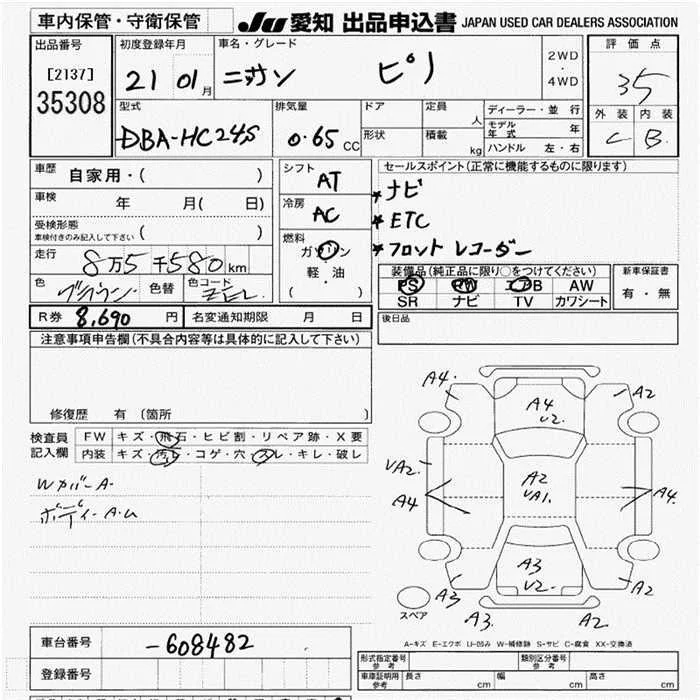 車内保管・守衛保管 JU 愛知 出品申込書 JAPAN USED CAR DEALERS ASSOCIATION
出品番号 初度登録年月 車名・グレード 2WD ・ 4WD 評価点
[2137] 21 01月 ニッサン ピノ 35
35308 外装 内装
型式 排気量 ドア 定員 人 ディーラー・並行 C B
DBA-HC24S 0.65 CC 形状 積載 kg モデル年式 年
ハンドル 左・右
車歴 自家用・( ) シフト AT セールスポイント(正常に機能するものに限ります)
車検 年 月( 日) 冷房 AC ★ナビ
受検形態 ★ETC
車検付きのみ記入して下さい ( ) 燃料 ★フロント レコーダー
走行 8万5千580km ガソリン
色 ブラウン 色替 色コード 軽・油 装備品(純正品に限り○をつけてください) 新車保証書
( ) PS PW エアB AW 有・無
SR ナビ TV カワシート
R券 8,690 円 名変通知期限 月 日 後日品
注意事項申告欄(不具合内容等は具体的に記入して下さい)
修復歴 有 (箇所 )
検査員 FW キズ・飛石・ヒビ割・リペア跡・X要
記入欄 内装 キズ・汚レ・コゲ・穴・スレ・キレ・破レ
WカバーA
ボディーA.U
A4 A2
A4
U2.
UA2 A2
A4 UA1. A4
A3
U2 A2
A3 A3 A2
スペア
A-キズ E-エクボ U-凹み W-補修跡 S-サビ C-腐食 XX-交換済
車台番号 -608482
登録番号
形式指定番号 参考 類別区分番号 参考
車庫証明用 参考 長さ cm 幅 cm 高さ cm